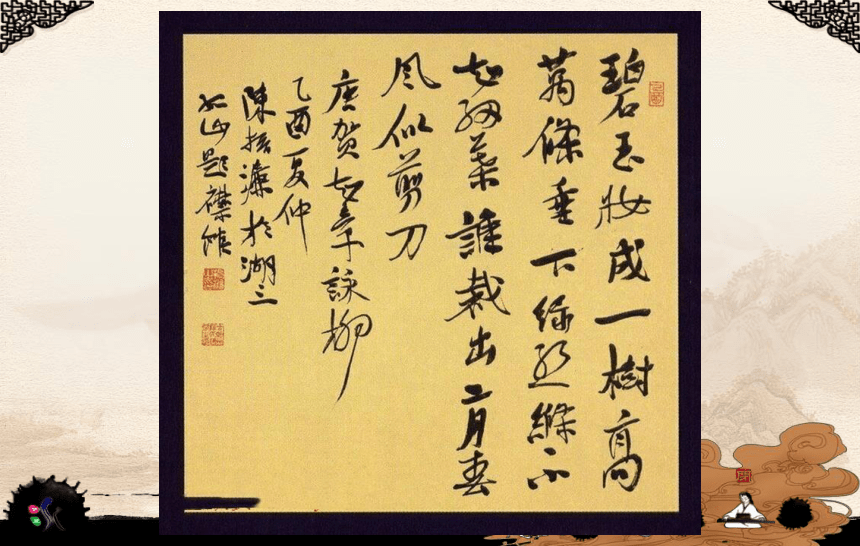 碧玉妝成一樹高
萬條垂下綠絲縧不
知細葉誰裁出二月春
风似剪刀
唐賀知章詠柳
乙酉夏仲
陳於湖
山題襟館